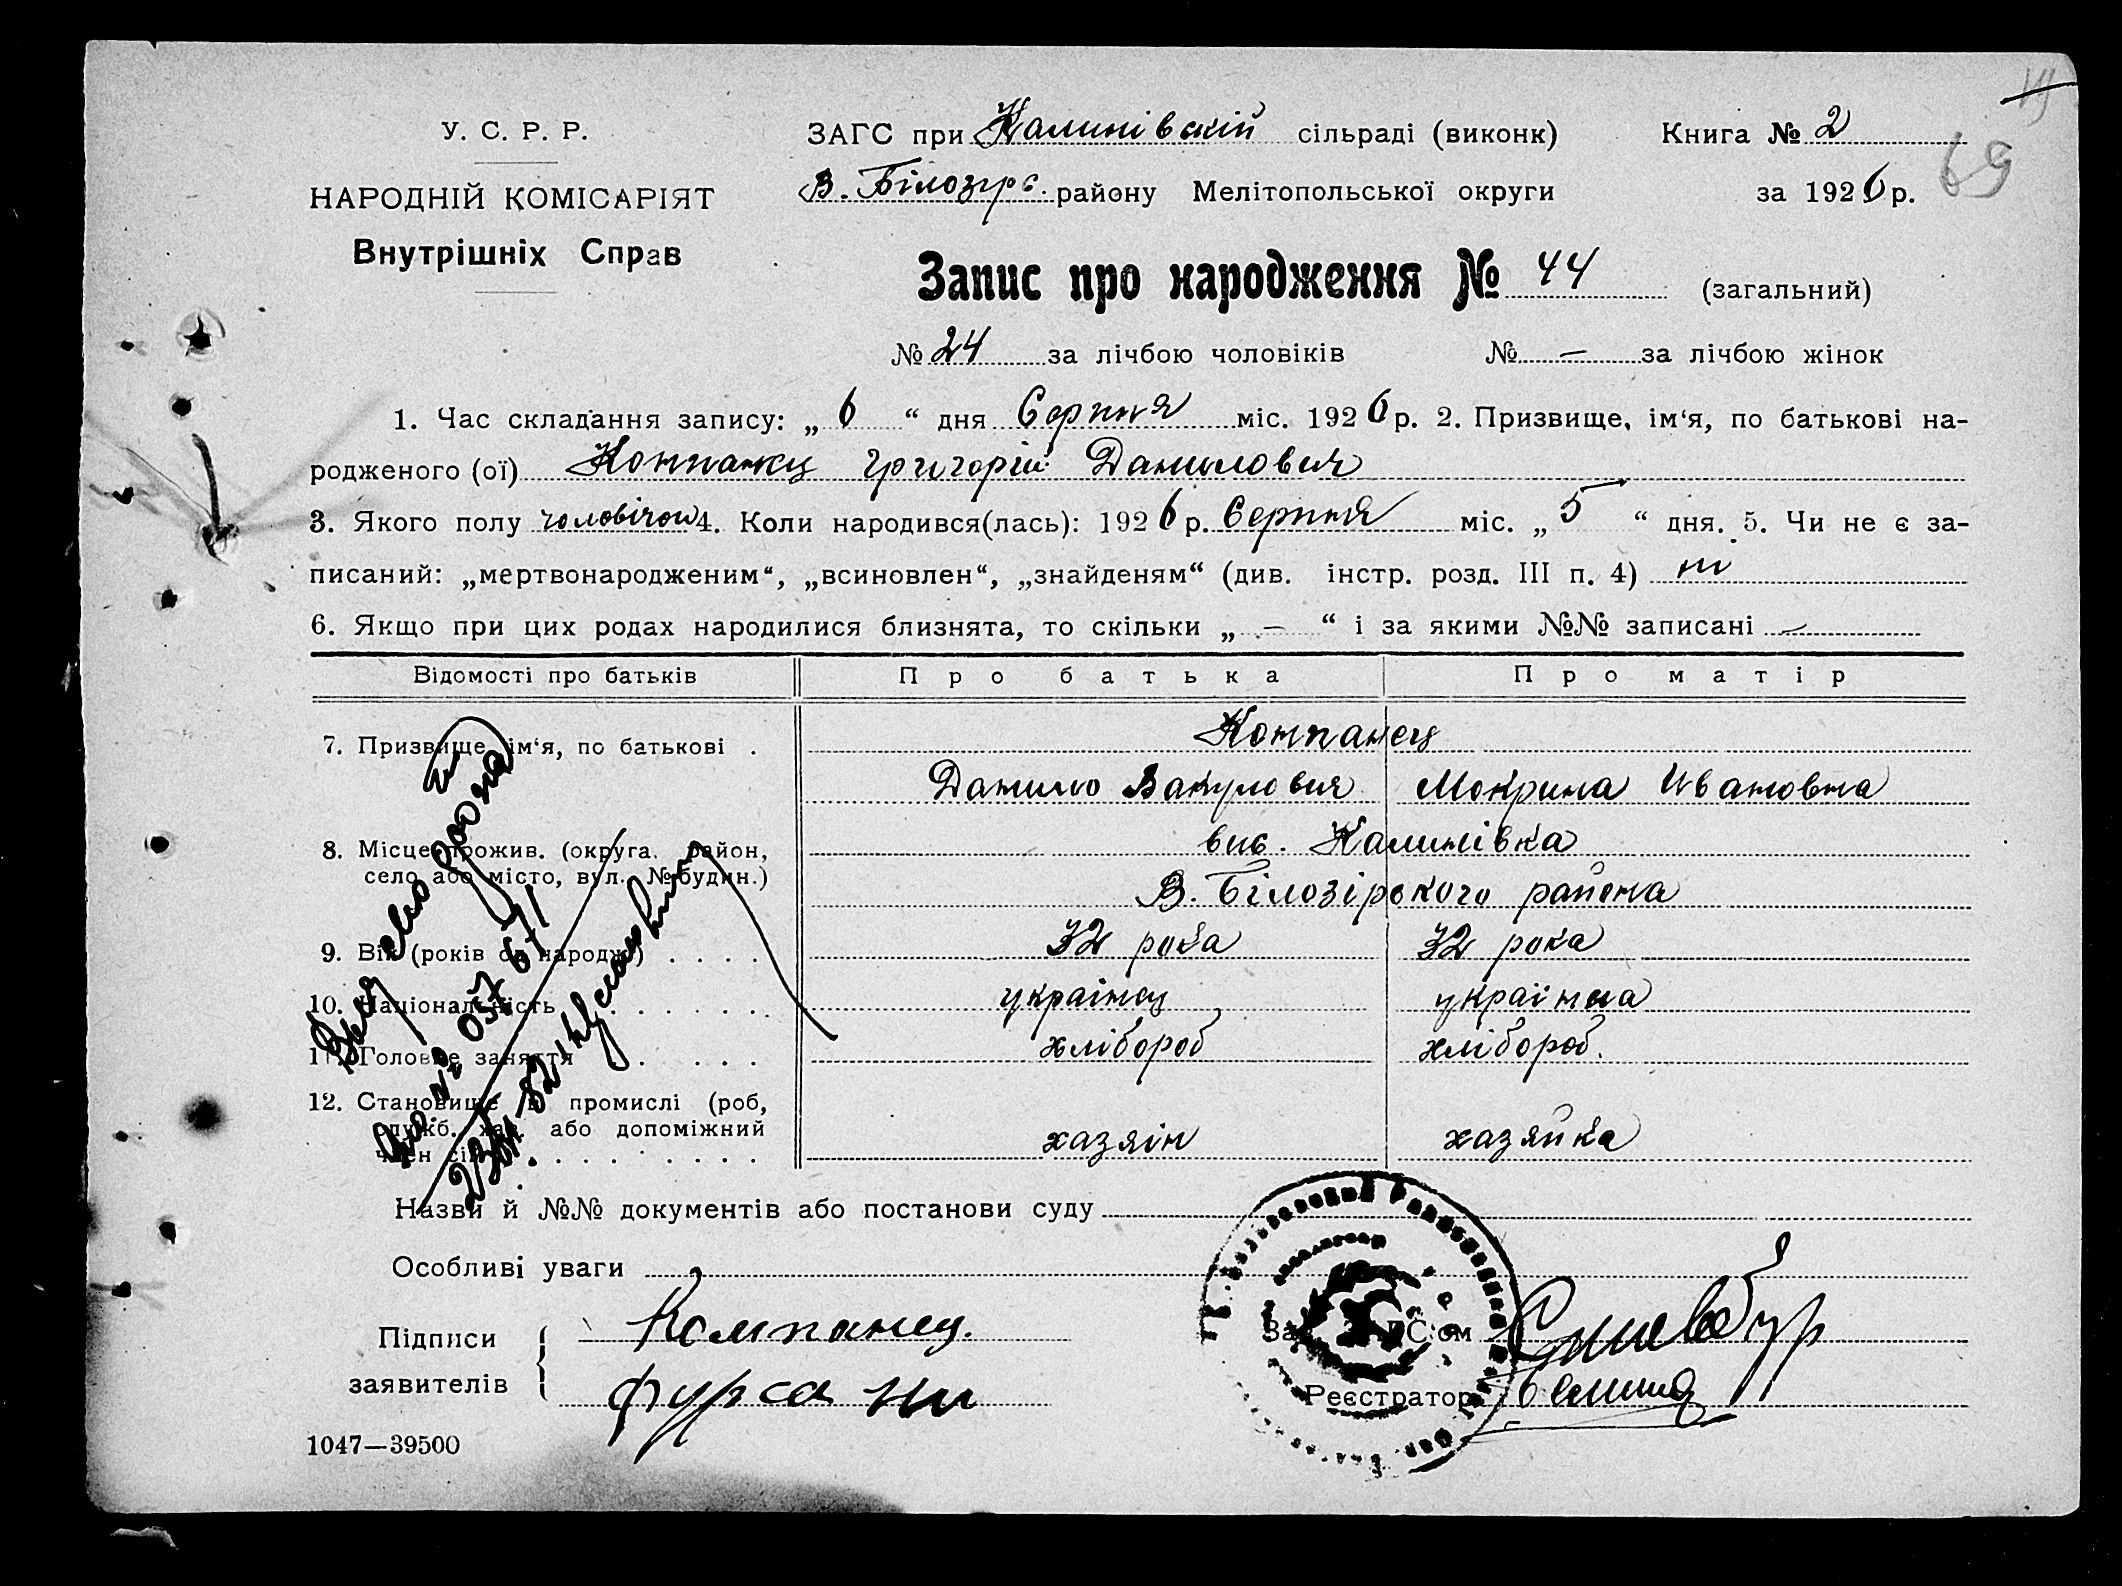 У. С. Р. Р.
НАРОДНІЙ КОМІСАРІЯТ
Внутрішніх Справ
ЗАГС при Калинівскій сільраді (виконк)
В. Білозірс. району Мелітопольської округи
Книга № 2
за 1926 р.
69
Запис про народження № 44 (загальний)
№ 24 за лічбою чоловіків № — за лічбою жінок
1. Час складання запису: „ 6 “ дня Серпня міс. 1926 р. 2. Призвище, ім‘я, по батькові на-
родженого (ої) Компанец Григорій Данилович
3. Якого полу чоловічои 4. Коли народився(лась): 1926 р. Серпня міс. „ 5 “ дня. 5. Чи не є за-
писаний: „мертвонародженим“, „всиновлен“, „знайденям“ (див. інстр. розд. III п. 4) ні
6. Якщо при цих родах народилися близнята, то скільки „ — “ і за якими №№ записані —
Відомості про батьків Про батька Про матір
7. Призвище, ім‘я, по батькові . Компанец
Данило Вакулович Мокрина Ивановна
8. Місце прожив. (округа, район, вис. Калинівка
село або місто, вул. № будин.) В. Білозірського района
9. Вік (років од народж.) . . . . 32 рока 32 рока
10. Національність . . . . . . . українец українка
11. Головне заняття . . . . . хлібороб хлібороб.
12. Становище в промислі (роб,
служб. хаз. або допоміжний
член сім . . . . . . . . . хазяін хазяйка
Назви й №№ документів або постанови суду
Особливі уваги
Підписи Компанец.
заявителів Фурса
Зав. ЗАГС‘ом
Реєстратор
1047—39500